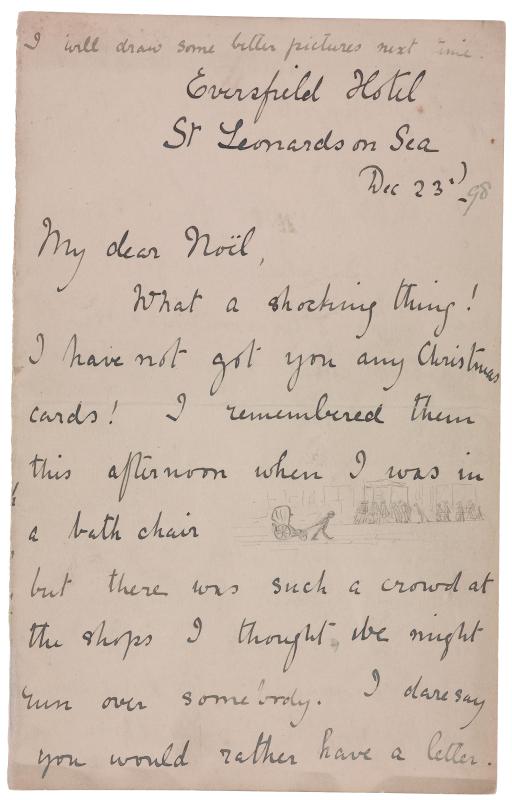 I will draw some better pictures next time.
Eversfield Hotel
St Leonards on Sea
Dec 23rd 98
My dear Noël,
What a shocking thing!
I have not got you any Christmas
cards! I remembered them
this afternoon when I was in
a bath chair
but there was such a crowd at
the shops I thought we might
run over somebody. I daresay
you would rather have a letter.